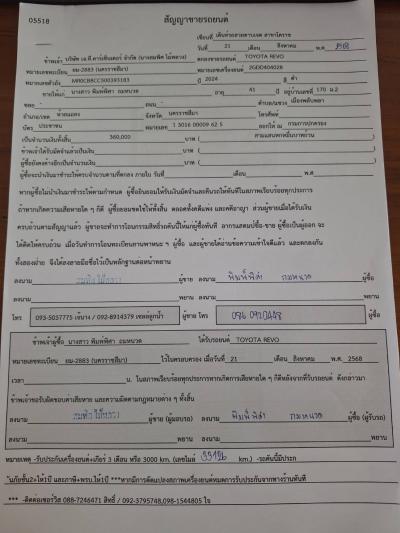 05518
สัญญาขายรถยนต์
เขียนที่ เต็นท์รถสวยตาเจต สาขาโคราช
วันที่ 21 เดือน สิงหาคม พ.ศ. 2568
ข้าพเจ้า บริษัท เจ.ที.คาร์เซ็นเตอร์ จำกัด ตกลงขายรถยนต์ TOYOTA REVO
หมายเลขทะเบียน ยม-2883 (นครราชสีมา) หมายเลขเครื่องยนต์ 2GDD404028
หมายเลขตัวถัง MR0CB8CC500393183 ปี 2024 สี ดำ
ขายให้แก่ นางสาว พิมพ์พิศา ถมหนวด อายุ 41 ปี อยู่บ้านเลขที่ 170 ม.2
ซอย - ถนน - ตำบล/แขวง เมืองพลับพลา
อำเภอ/เขต ห้วยแถลง จังหวัด นครราชสีมา โทรศัพท์
บัตร ประชาชน หมายเลข 1 3016 00009 62 5 ออกให้ ณ กรมการปกครอง
เป็นจำนวนเงินทั้งสิ้น 360,000 บาท ( สามแสนหกหมื่นบาทถ้วน )
ข้าพเจ้าได้รับมัดจำแล้วเป็นเงิน บาท ( )
ผู้ซื้อยังคงค้างอีกเป็นจำนวนเงิน บาท ( )
ผู้ซื้อจะนำเงินมาชำระให้ครบจำนวนตามที่ตกลง ภายใน วันที่ เดือน พ.ศ.
หากผู้ซื้อไม่นำเงินมาชำระให้ตามกำหนด ผู้ซื้อยินยอมให้ริบเงินมัดจำและคืนรถให้ทันทีในสภาพเรียบร้อยทุกประการ
ถ้าหากเกิดความเสียหายใด ๆ ก็ดี ผู้ซื้อยอมชดใช้ให้ทั้งสิ้น ตลอดทั้งคดีแพ่ง และคดีอาญา ส่วนผู้ขายเมื่อได้รับเงิน
ครบถ้วนตามสัญญาแล้ว ผู้ขายจะทำการโอนกรรมสิทธิ์รถคันนี้ให้แก่ผู้ซื้อทันที
ได้คิดให้ครบถ้วน เมื่อวันทำการโอนทะเบียนยานพาหนะ ฯ ผู้ซื้อ และผู้ขายได้อ่านข้อความเข้าใจดีแล้ว และตกลงกัน
ทั้งสองฝ่าย จึงได้ลงลายมือชื่อไว้เป็นหลักฐานต่อหน้าพยาน
ลงนาม ผู้ขาย ลงนาม พิมพ์พิศา ถมหนวด ผู้ซื้อ
ลงนาม พยาน ลงนาม พยาน
โทร 093-5057775 เจ้นาง / 092-8914379 เซลล์ลูกน้ำ ผู้ขาย โทร ผู้ซื้อ
ข้าพเจ้าผู้ซื้อ นางสาว พิมพ์พิศา ถมหนวด ได้รับรถยนต์ TOYOTA REVO
หมายเลขทะเบียน ยม-2883 (นครราชสีมา) ไว้ในครอบครอง เมื่อวันที่ 21 เดือน สิงหาคม พ.ศ. 2568
เวลา น. ในสภาพเรียบร้อยทุกประการหากเกิดการเสียหายใด ๆ ก็ดีหลังจากที่รับรถยนต์ ดังกล่าวมา
ข้าพเจ้าขอรับผิดชอบค่าเสียหาย และความผิดตามกฎหมายต่าง ๆ ทั้งสิ้น
ลงนาม ผู้ขาย (ผู้มอบรถ) ลงนาม พิมพ์พิศา ถมหนวด ผู้ซื้อ (ผู้รับรถ)
ลงนาม พยาน ลงนาม พยาน
หมายเหตุ -รับประกันเครื่องยนต์+เกียร์ 3 เดือน หรือ 3000 km. (เลขไมล์ km.) -รถคันนี้มีประก
*นภัยชั้น2+ให้1ปี และภาษี+พรบ.ให้1ปี ***หากมีการดัดแปลงสภาพเครื่องยนต์หมดการรับประกันจากทางร้านทันที
*** -ติดต่อเซอร์วิส 088-7246471 สิทธิ์ / 092-3795748,098-1544805 ใจ